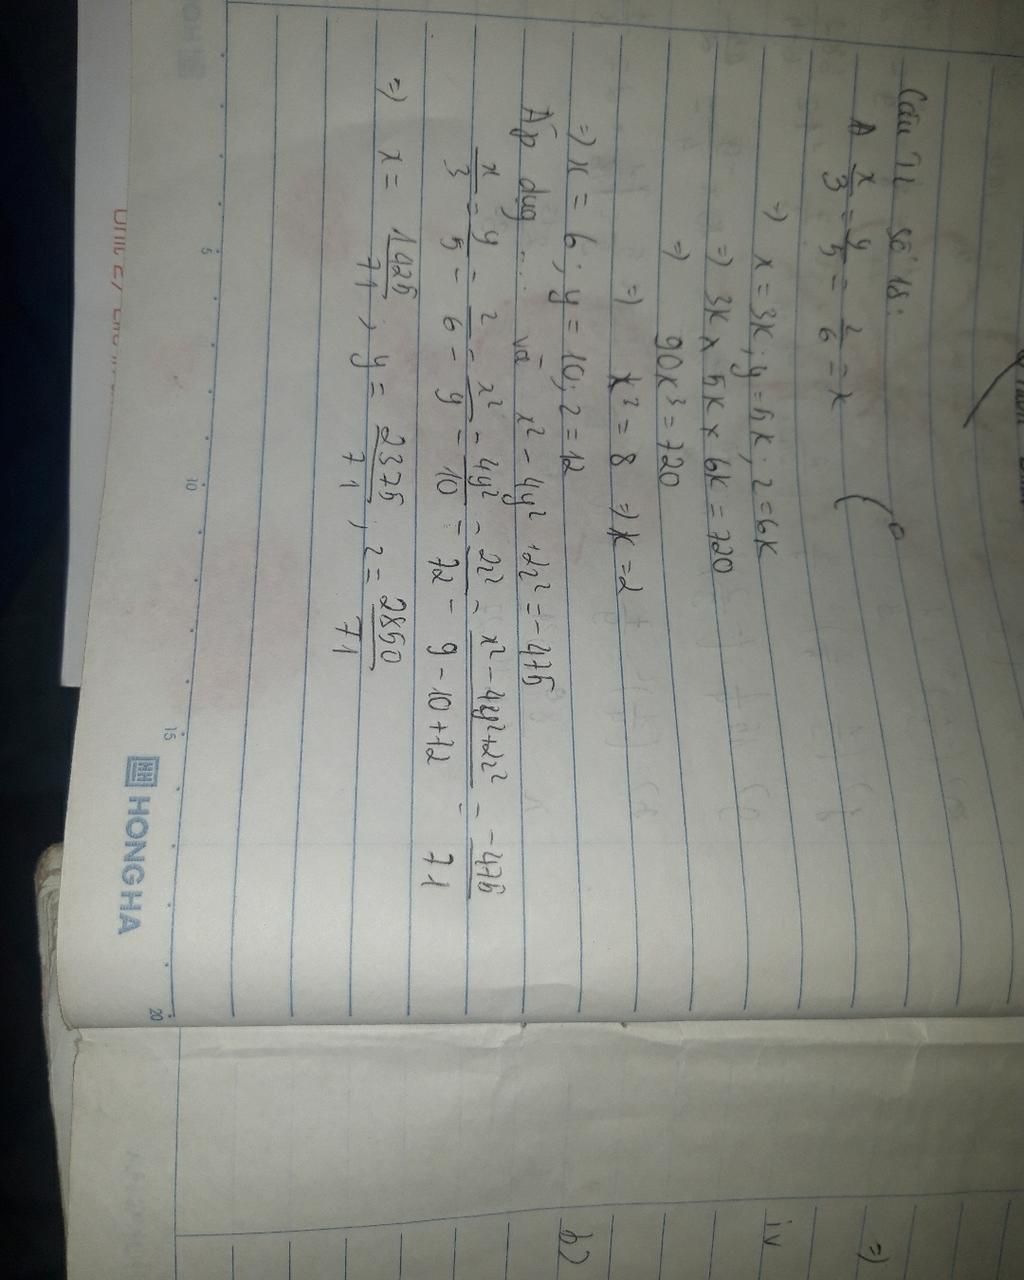 Câu 71 số 18:
A x/3 = y/5 = z/6 = k
=) x = 3k; y = 5k; z = 6k
=) 3k x 5k x 6k = 720
=) 90k³ = 720
=) k³ = 8 =) k = 2
=) x = 6; y = 10; z = 12
Áp dụg ... và x² - 4y² + 2z² = -475
x/3 = y/5 = z/6 = x²/9 = 4y²/10 = 2z²/72 = x² - 4y² + 2z²/9 - 10 + 72 = -475/71
=) x = 1425/71, y = 2375/71, z = 2850/71
5
10
15
20
HH HONG HA
iv
b)
=)